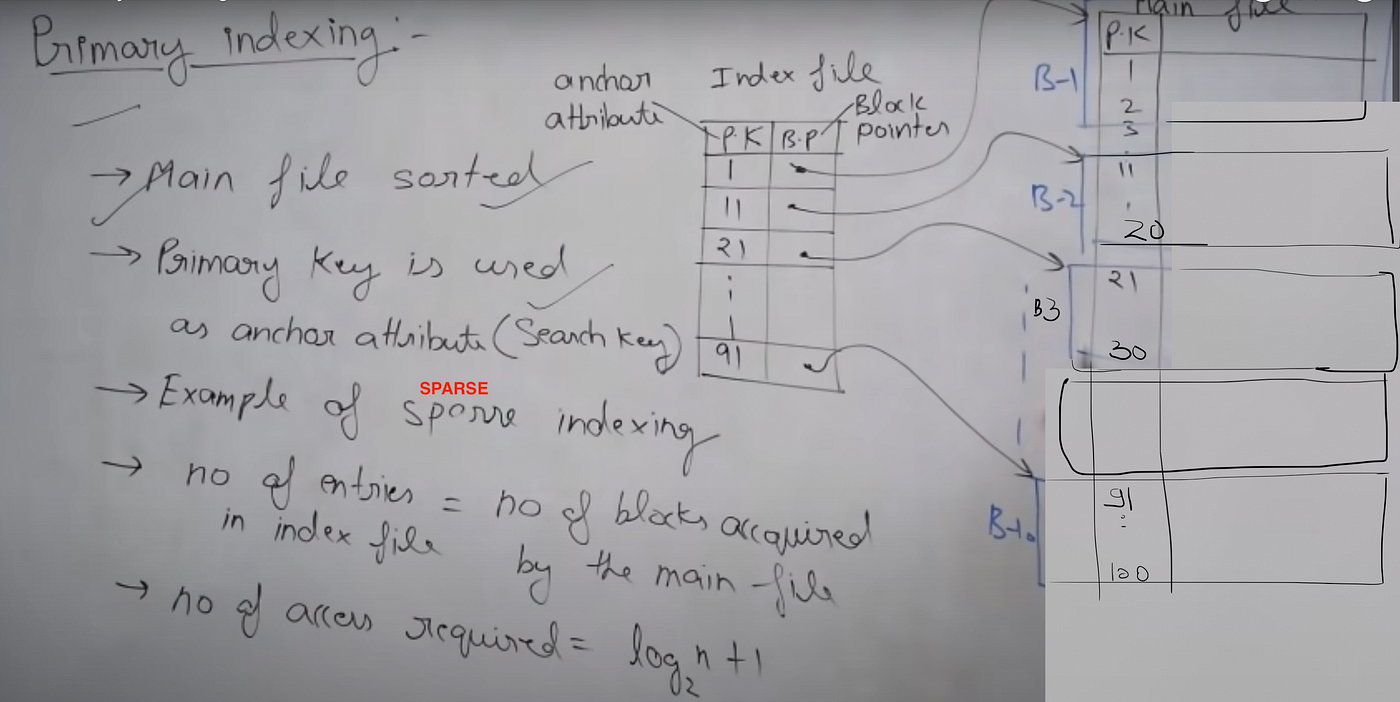 Primary indexing :-
→ Main file sorted
→ Primary Key is used
as anchar attribute (Search Key)
SPARSE
→ Example of sparse indexing
→ no of entries = no of blocks acquired
in index file by the main file
→ no of access required = log₂n + 1
anchar
attribute
Index file
Block
pointer
P.K B.P
1
11
21
91
Main file
P.K
B-1
1
2
3
B-2
11
20
B3
21
30
B-10
91
:
100